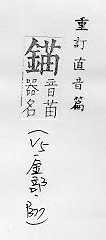 重訂直音篇
錨
音苗
器名
(V5金部.B22)